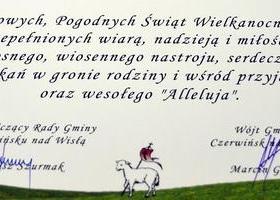 owych, Pogodnych Świąt Wielkanocn
epełnionych wiarą, nadzieją i miłoś
esnego, wiosennego nastroju, serdecz
kań w gronie rodziny i wśród przyj
oraz wesołego "Alleluja".
czący Rady Gminy Wójt Gm
ińsku nad Wisłą Czerwińsk na
sz Szurmak Marcin G